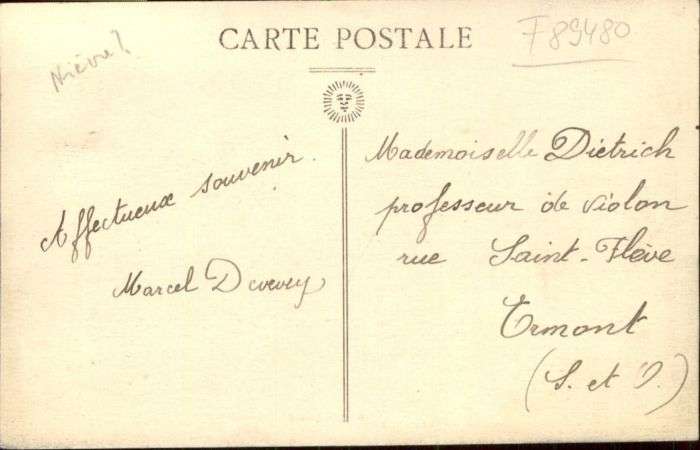 CARTE POSTALE
F89480
Nièvre?
Affectueux souvenir.
Marcel Devevey
Mademoiselle Dietrich
professeur de violon
rue Saint-Flève
Ermont
(S. et O.)